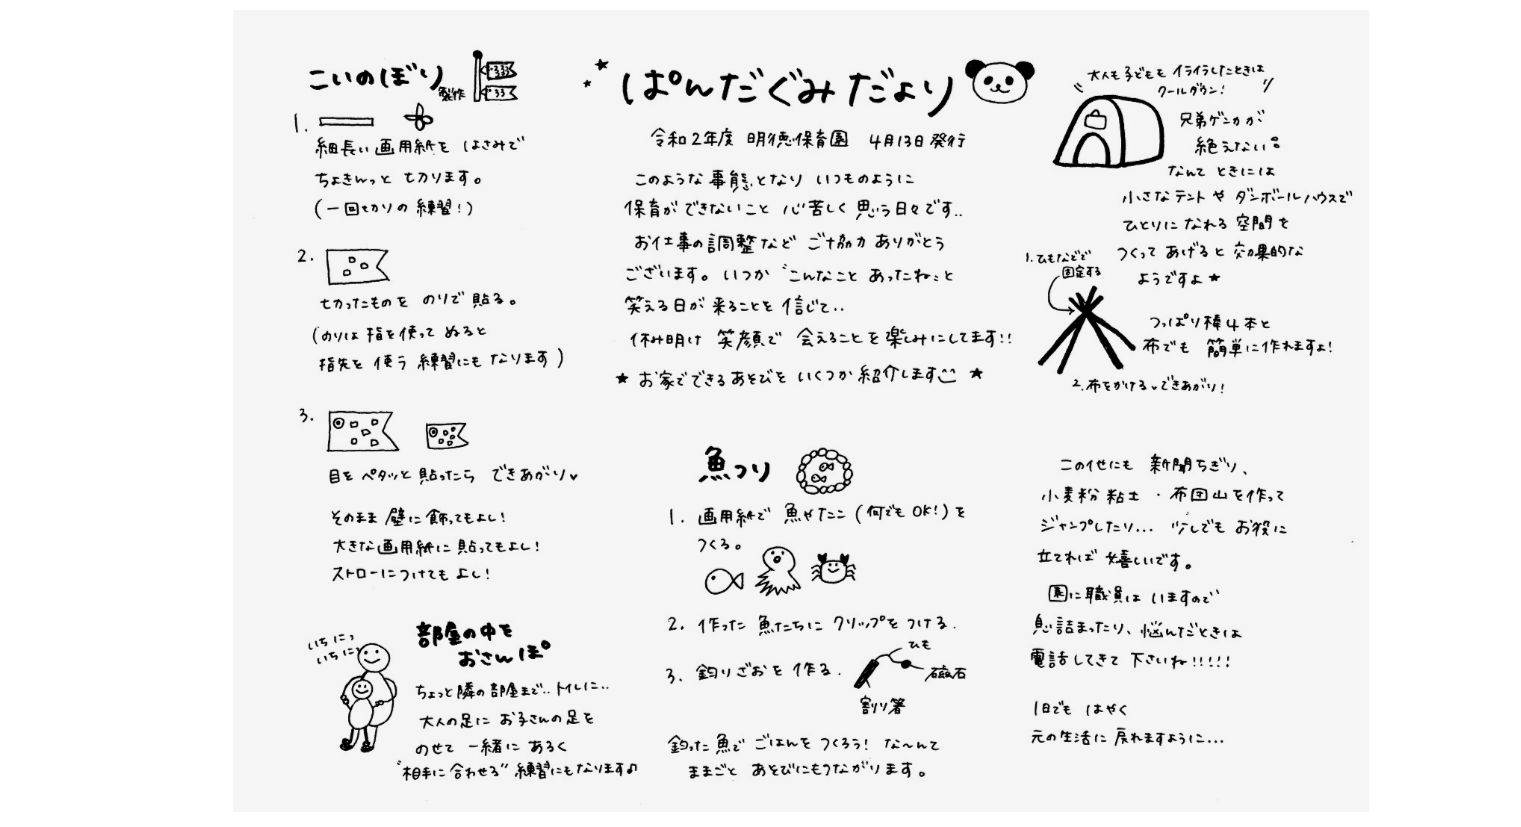 ぱんだぐみだより
令和2年度 明徳保育園 4月13日発行
このような事態となり いつものように
保育ができないこと 心苦しく思う日々です..
お仕事の調整など ご協力ありがとう
ございます。いつか "こんなことあったね"と
笑える日が来ることを信じて..
休み明け 笑顔で 会えることを楽しみにしてます!!
★ お家でできるあそびを いくつか紹介します ★
こいのぼり製作
1.
細長い画用紙を はさみで
ちょきんっと切ります。
(一回切りの練習!)
2.
切ったものを のりで貼る。
(のりは指を使って ぬると
指先を使う練習にもなります)
3.
目をペタッと貼ったら できあがり♥
そのまま壁に飾ってもよし!
大きな画用紙に貼ってもよし!
ストローにつけてもよし!
いちにっ
いちにっ
部屋の中を
おさんぽ
ちょっと隣の部屋まで..トイレに..
大人の足に お子さんの足を
のせて 一緒に あるく
"相手に合わせる"練習にもなります♪
魚つり
1. 画用紙で 魚やたこ(何でもOK!)を
つくる。
2. 作った魚たちに クリップをつける.
3. 釣りざおを作る.
ひも
磁石
割り箸
釣った魚で ごはんをつくろう! な〜んて
ままごとあそびにもつながります。
大人も子どもも イライラしたときは
クールダウン!
兄弟ゲンカが
絶えない。
なんて ときには
小さなテントや ダンボールハウスで
ひとりになれる空間を
つくってあげると 効果的な
ようですよ★
1.ひもなどで
固定する
つっぱり棒4本と
布でも 簡単に作れますよ!
2.布をかける♥できあがり!
この他にも 新聞ちぎり、
小麦粉粘土・布団山を作って
ジャンプしたり... 少しでもお役に
立てれば嬉しいです。
園に職員は いますので
息詰まったり、悩んだときは
電話してきて下さいね!!!!!
1日でも はやく
元の生活に 戻れますように...